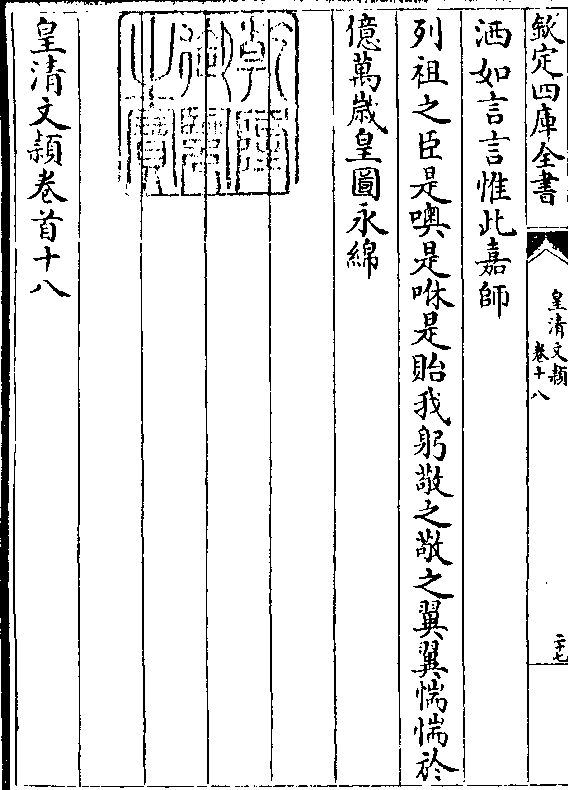 欽定四庫全書
皇清文穎
卷十八
二十七
洒如言言惟此嘉師
列祖之臣是噢是咻是貽我躬敬之敬之翼翼惴惴於
億萬歲皇圖永綿
乾隆
御覽
之寶
皇清文穎卷首十八